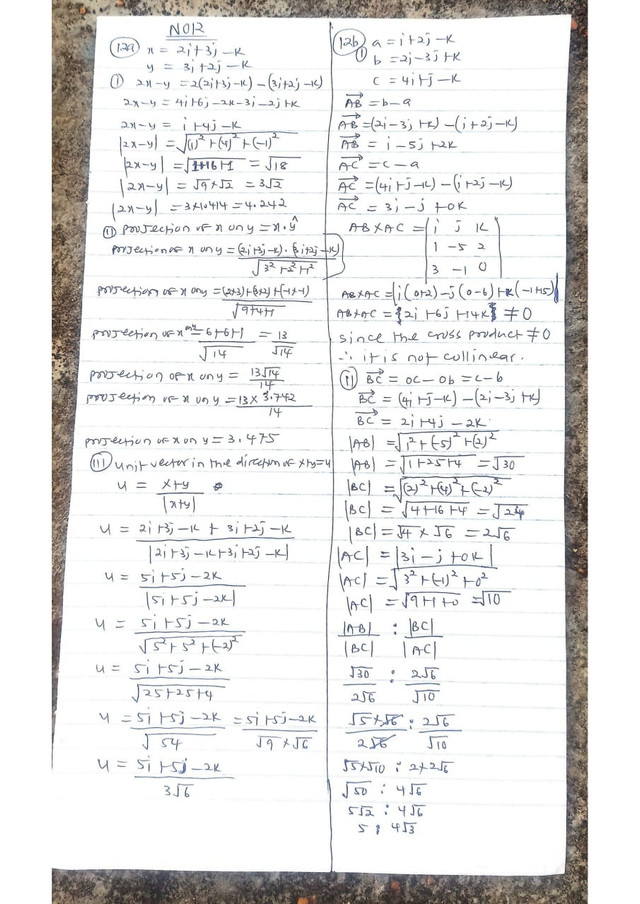 NO12
12a) x = 2i+3j-k
y = 3i+2j-k
(i) 2x-y = 2(2i+3j-k)-(3i+2j-k)
2x-y = 4i+6j-2k-3i-2j+k
2x-y = i+4j-k
|2x-y| = √(1)²+(4)²+(-1)²
|2x-y| = √1+16+1 = √18
|2x-y| = √9×√2 = 3√2
|2x-y| = 3×1.414 = 4.242
(ii) projection of x on y = x.ŷ
projection of x on y = (2i+3j-k).(3i+2j-k)/√3²+2²+1²
projection of x on y = (2×3)+(3×2)+(-1×-1)/√9+4+1
projection of x on y = 6+6+1/√14 = 13/√14
projection of x on y = 13√14/14
projection of x on y = 13×3.742/14
projection of x on y = 3.475
(iii) unit vector in the direction of x+y=u
u = x+y/|x+y|
u = 2i+3j-k+3i+2j-k/|2i+3j-k+3i+2j-k|
u = 5i+5j-2k/|5i+5j-2k|
u = 5i+5j-2k/√5²+5²+(-2)²
u = 5i+5j-2k/√25+25+4
u = 5i+5j-2k/√54 = 5i+5j-2k/√9×√6
u = 5i+5j-2k/3√6
12b) a = i+2j-k
(i) b = 2i-3j+k
c = 4i+j-k
AB = b-a
AB = (2i-3j+k)-(i+2j-k)
AB = i-5j+2k
AC = c-a
AC = (4i+j-k)-(i+2j-k)
AC = 3i-j+0k
AB×AC = |i j k
1 -5 2
3 -1 0|
AB×AC = |i(0+2)-j(0-6)+k(-1+15)|
AB×AC = {2i+6j+14k} ≠0
since the cross product ≠0
∴ it is not collinear.
(ii) BC = oc-ob = c-b
BC = (4i+j-k)-(2i-3j+k)
BC = 2i+4j-2k
|AB| = √1²+(-5)²+(2)²
|AB| = √1+25+4 = √30
|BC| = √(2)²+(4)²+(-2)²
|BC| = √4+16+4 = √24
|BC| = √4×√6 = 2√6
|AC| = |3i-j+0k|
|AC| = √3²+(-1)²+0²
|AC| = √9+1+0 = √10
|AB|/|BC| : |BC|/|AC|
√30/2√6 : 2√6/√10
√5×√6/2√6 : 2√6/√10
√5×√10 : 2×2√6
√50 : 4√6
5√2 : 4√6
5 : 4√3